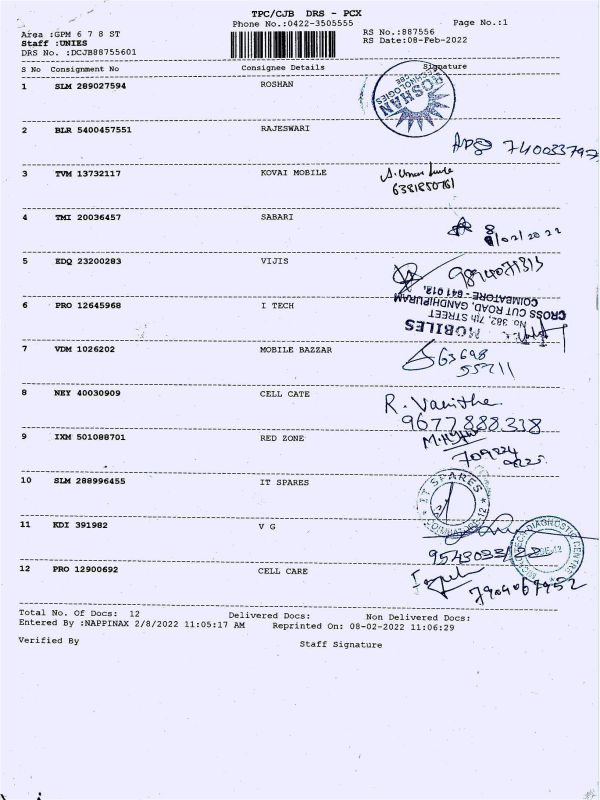 TPC/CJB DRS - PCX
Phone No.:0422-3505555 Page No.:1
Area :GPM 6 7 8 ST RS No.:887556
Staff :UNIES RS Date:08-Feb-2022
DRS No. :DCJB88755601
S No Consignment No Consignee Details Signature
1 SLM 289027594 ROSHAN
ROSHAN TECHNOLOGIES CBE
2 BLR 5400457551 RAJESWARI
3 TVM 13732117 KOVAI MOBILE
6381850761
4 TMI 20036457 SABARI
8/02/2022
5 EDQ 23200283 VIJIS
6 PRO 12645968 I TECH
MOBILES
No 382, 7th STREET
CROSS CUT ROAD, GANDHIPURAM
COIMBATORE - 641 012.
7 VDM 1026202 MOBILE BAZZAR
63698
55711
8 NEY 40030909 CELL CATE
R. Vanitha
9677888338
9 IXM 501088701 RED ZONE
10 SLM 288996455 IT SPARES
IT SPARES COIMBATORE-12
11 KDI 391982 V G
DIAGNOSTIC CENTRE
12 PRO 12900692 CELL CARE
7904067952
Total No. Of Docs: 12 Delivered Docs: Non Delivered Docs:
Entered By :NAPPINAX 2/8/2022 11:05:17 AM Reprinted On: 08-02-2022 11:06:29
Verified By Staff Signature